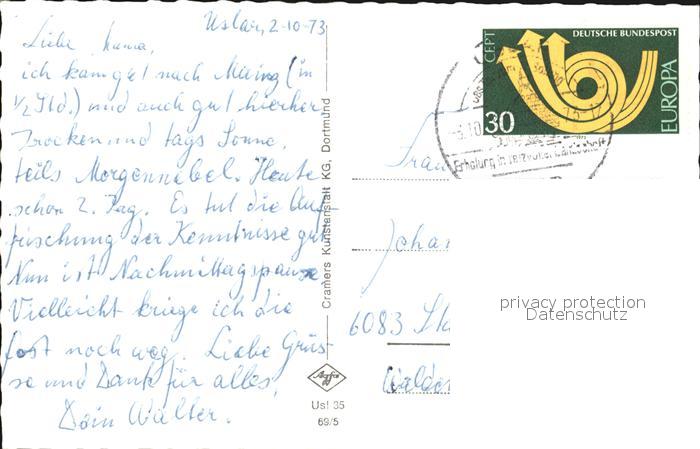 Uslar, 2-10-73
Liebe Mama,
ich kam gut nach Mainz (in
1/2 Std.) und auch gut hierher.
Trocken und tags Sonne,
teils Morgennebel. Heute
schon 2. Tag. Es tut die Auf-
frischung der Kenntnisse gut.
Nun ist Nachmittagspause.
Vielleicht kriege ich die
Post noch weg. Liebe Grüs-
se und Dank für alles,
Dein Walter.
Cramers Kunstanstalt KG, Dortmund
Agfa
Usl 35
69/5
DEUTSCHE BUNDESPOST
CEPT
EUROPA
30
Erholung in reizvoller Landschaft
Frau
Johan
6083
Walde
privacy protection
Datenschutz